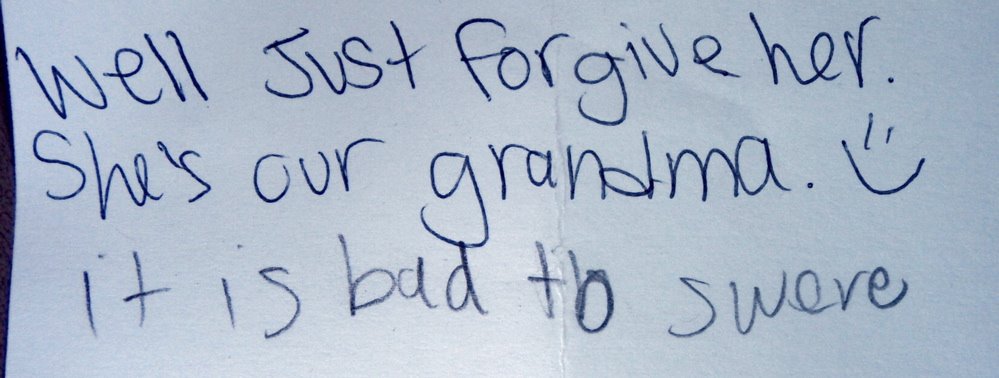 Well Just forgive her.
She's our grandma. :)
it is bad to swere